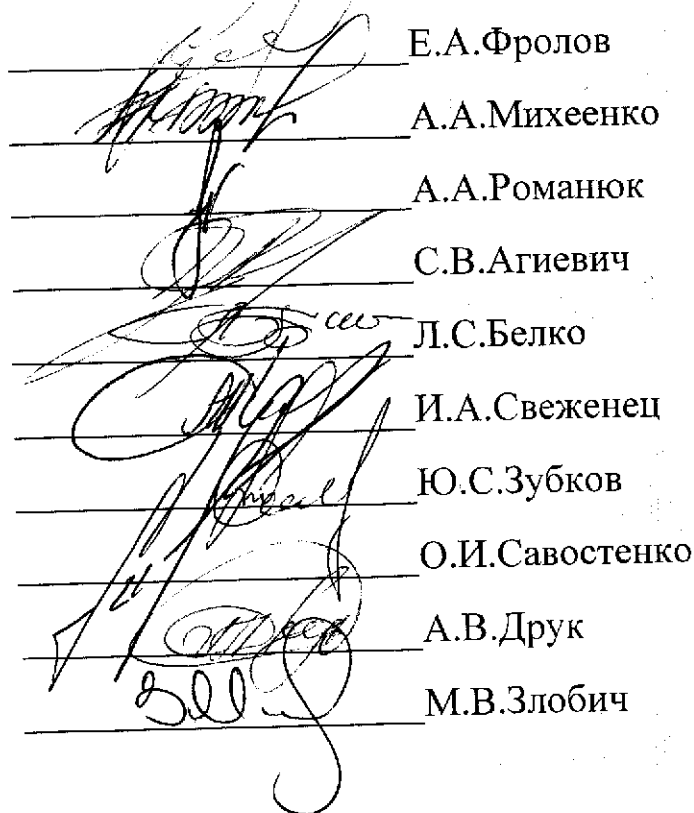 Е.А.Фролов
А.А.Михеенко
А.А.Романюк
С.В.Агиевич
Л.С.Белко
И.А.Свеженец
Ю.С.Зубков
О.И.Савостенко
А.В.Друк
М.В.Злобич